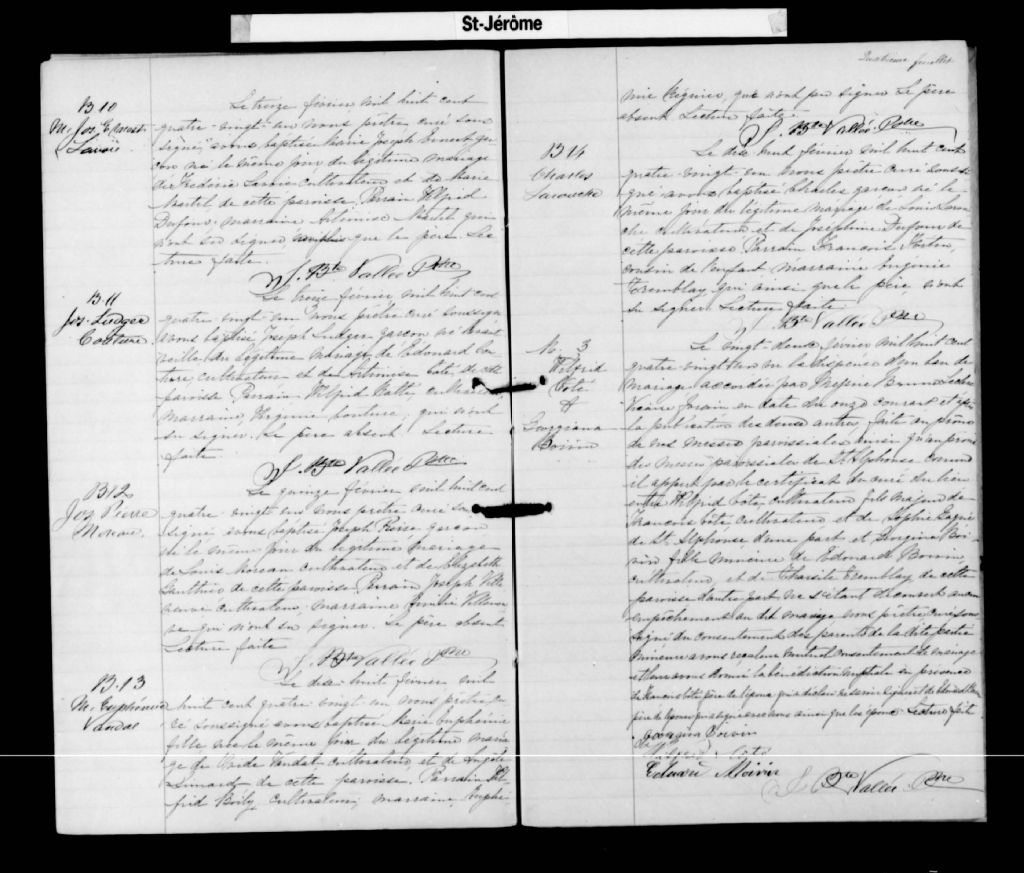 St-Jérôme
B 10
M. Jos. Ernest
Lavoie
Le treize février mil huit cent
quatre-vingt-un nous prêtre curé sous
signé avons baptisé Marie Joseph Ernest gar
çon né le même jour du légitime mariage
de Frédéric Lavoie cultivateur et de Marie
Martel de cette paroisse. Parrain Wilfrid
Dufour marraine Artémise Martel qui
n'ont su signer que le père. Lec
ture faite.
J. Bte Vallée Ptre
B 11
Jos. Ludger
Couture
Le treize février mil huit cent
quatre-vingt-un nous prêtre curé soussigné
avons baptisé Joseph Ludger garçon né avant
veille du légitime mariage de Edouard Cou
ture, cultivateur et de Artémise Côté de cette
paroisse Parrain Wilfrid cultivateur
marraine, Virginie Couture, qui n'ont
su signer. Le père absent. Lecture
faite.
J. Bte Vallée Ptre
B 12
Jos Pierre
Moreau.
Le quinze février mil huit cent
quatre-vingt-un nous prêtre curé sous
signé avons baptisé Joseph Pierre garçon
né le même jour du légitime mariage
de Louis Moreau cultivateur et de Elizabeth
Gauthier de cette paroisse Parrain Joseph Ville
neuve cultivateur marraine Emélie Villeneu
ve qui n'ont su signer. Le père absent
Lecture faite
J. Bte Vallée Ptre
B. 13
M. Euphémie
Vandal
Le dix-huit février mil
huit cent quatre-vingt-un nous prêtre cu
ré soussigné avons baptisé Marie Euphémie
fille née le même jour du légitime maria
ge de Vandal cultivateur et de Angèle
Simard de cette paroisse. Parrain Wil
frid Boily cultivateur, marraine, Euphé
Quatrième feuillet
mie qui n'ont pu signer Le père
absent Lecture faite.
J. Bte Vallée Ptre
B 14
Charles
Larouche
Le dix huit février mil huit cent
quatre-vingt-un nous prêtre curé soussi
gné avons baptisé Charles garçon né le
même jour du légitime mariage de Louis Larou
che cultivateur et de Joséphine Dufour de
cette paroisse Parrain François Fortin,
cousin de l'enfant marraine Eugénie
Tremblay qui ainsi que le père, n'ont
su signer Lecture faite.
J. Bte Vallée Ptre
M. 3
Wilfrid
Côté
&
Georgiana
Boivin
Le vingt-deux février mil huit cent
quatre-vingt-un vu la dispense d'un ban de
mariage accordée par Messire Bruno
Vicaire forain en date du onze courant et vu
la publication des deux autres, faite au prône
de nos messes paroissiales ainsi qu'au prône
des messes paroissiales de St Alphonse comme
il appert par le certificat du curé du lieu
entre Wilfrid Côté cultivateur fils majeur de
François Côté cultivateur et de Sophie Gagné
de St Alphonse d'une part et Georgina Boi
vin fille mineure de Edouard Boivin
cultivateur, et de Tharsile Tremblay de cette
paroisse d'autre part ne s'étant découvert aucun
empêchement au dit mariage nous prêtre curé sous
signé du consentement des parents de la dite partie
mineure avons reçu leur mutuel consentement de mariage
et leur avons donné la bénédiction nuptiale en présence
de François Côté père de l'époux qui a déclaré ne savoir signer et de Edouard Boivin
père de l'épouse qui a signé avec nous ainsi que les époux. Lecture faite
Georgina Boivin
Côté
Edouard Boivin
J Bte Vallée Ptre